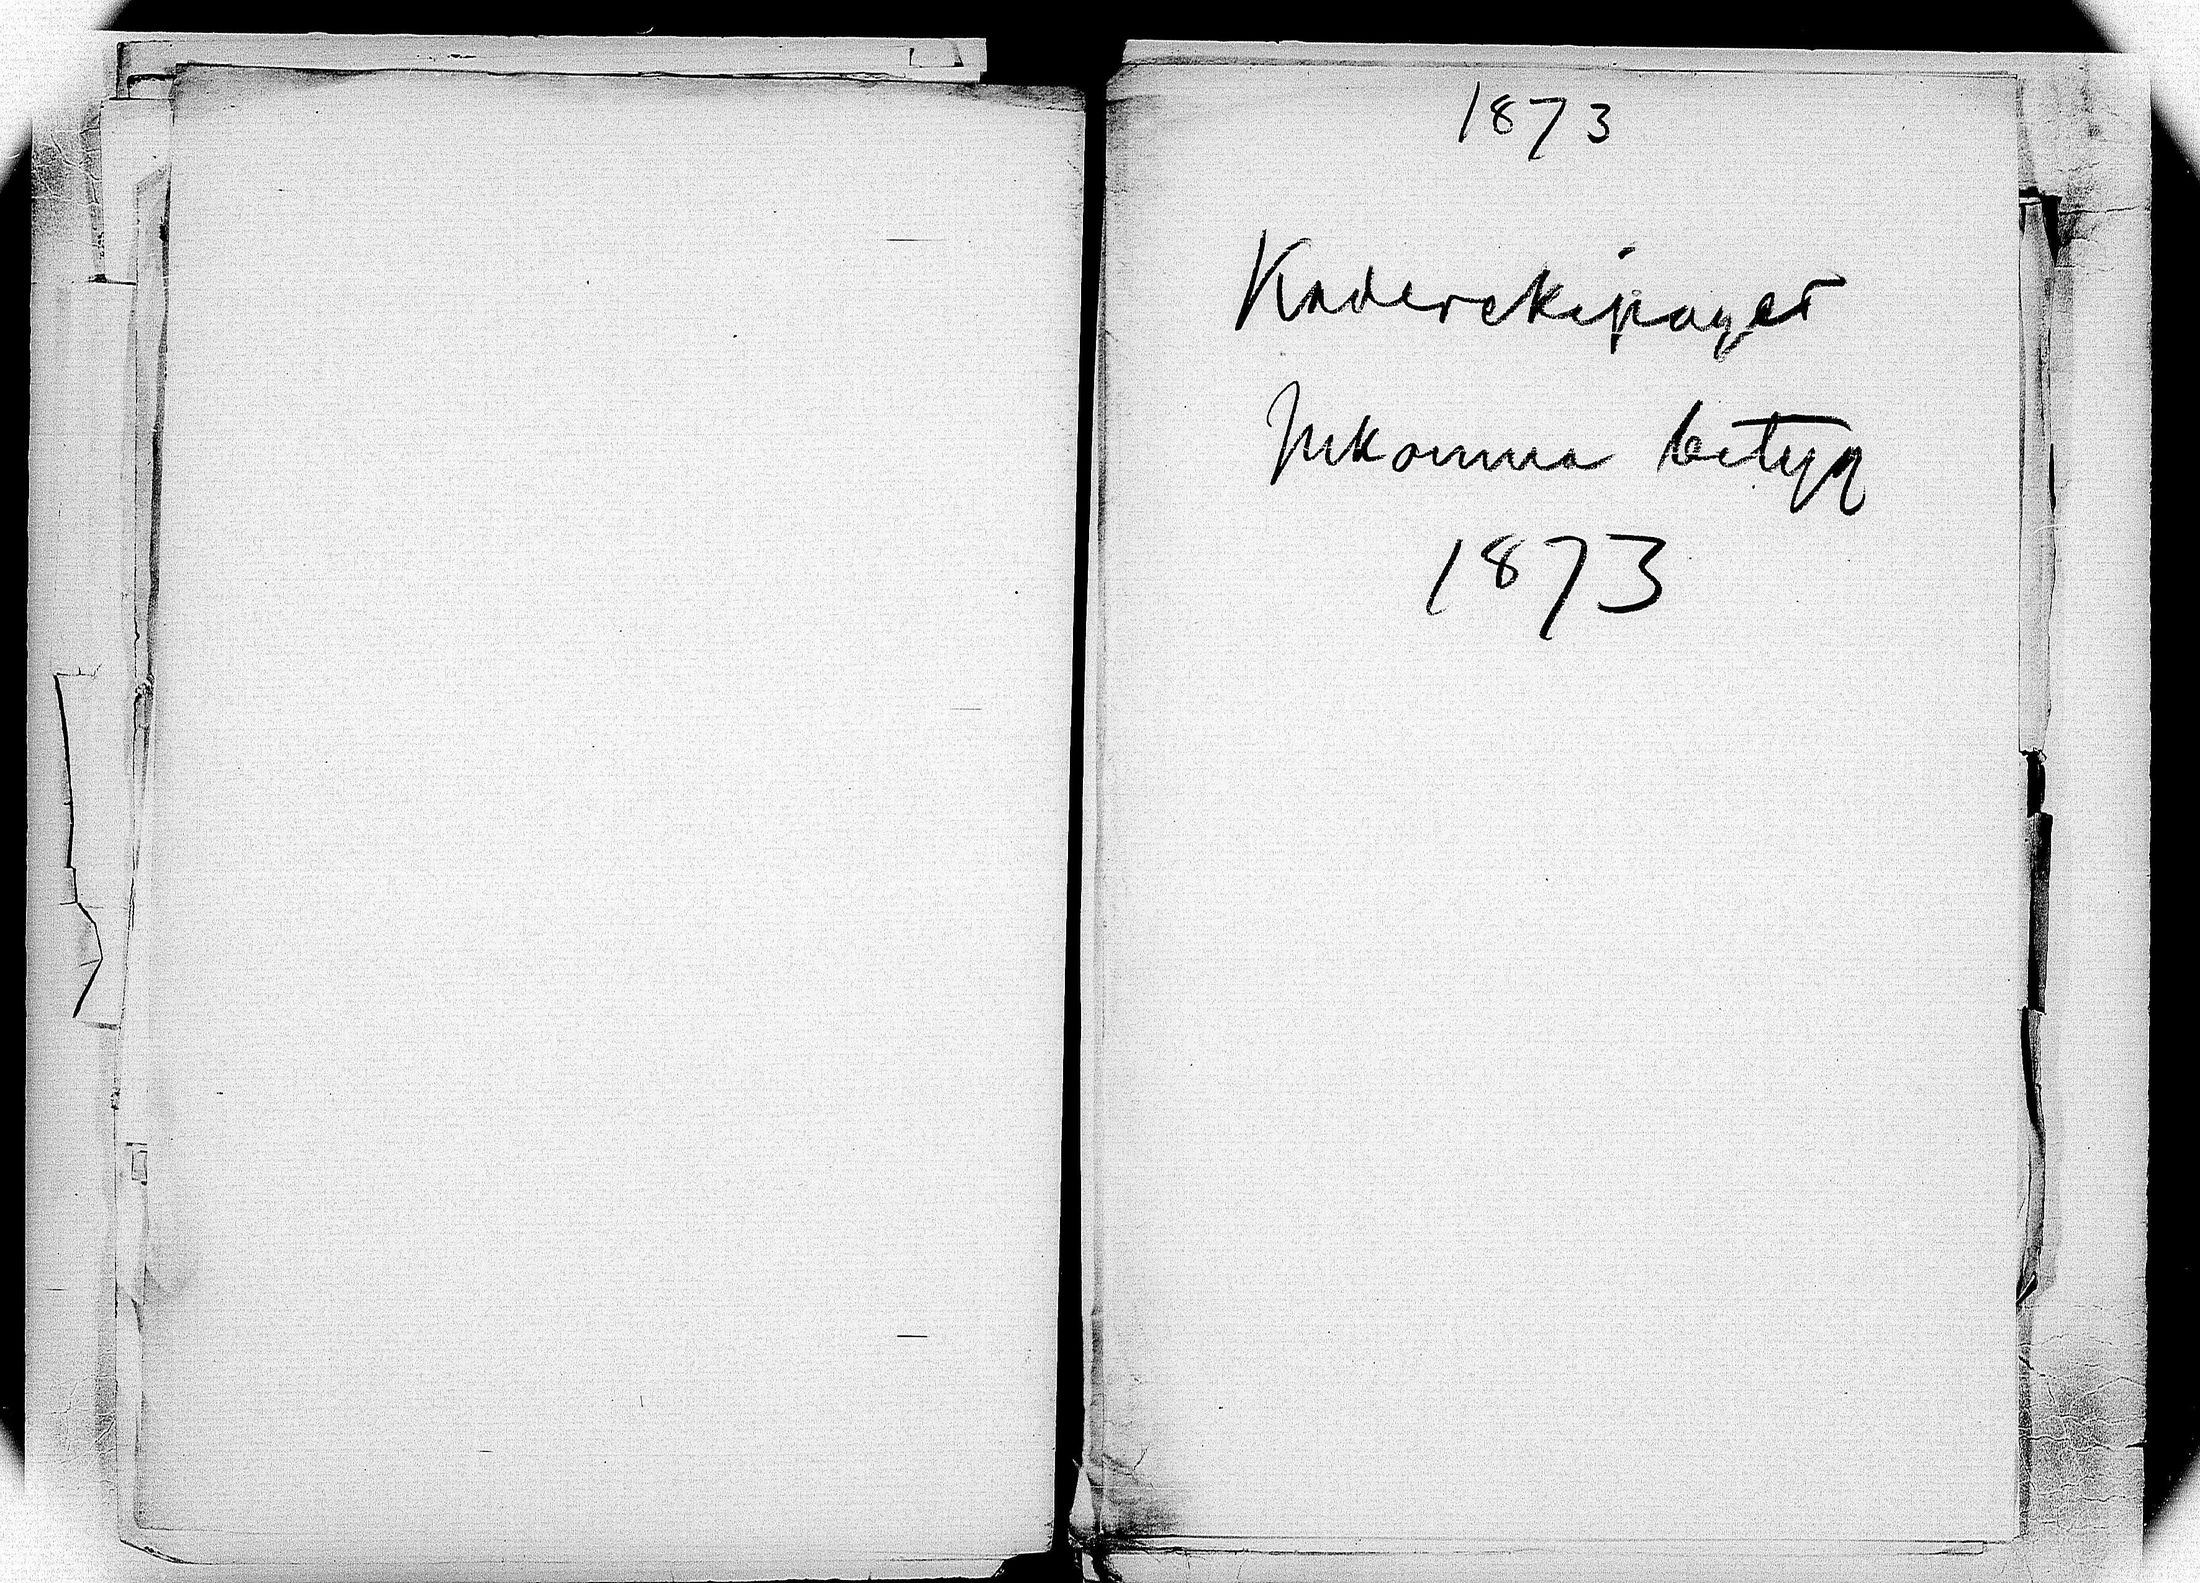 1873
Kaderekipaget
Inkomna betyg
1873